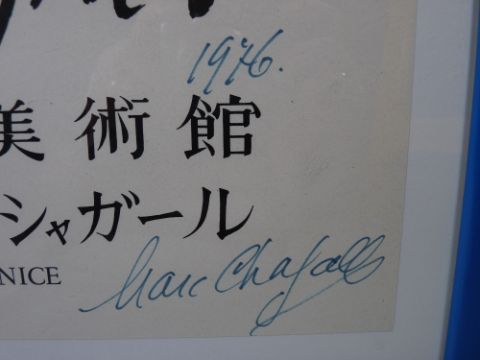 1976.
美術館
シャガール
NICE
Marc Chagall